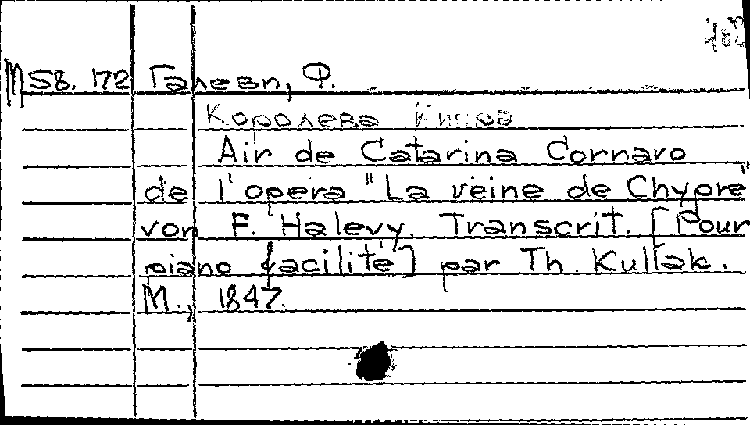 М58.172 Галеви, Ф.
Королева Кипра
Air de Catarina Cornaro
de l'opera "La reine de Chypre"
von F. Halevy. Transcrit. [Pour
piano facilité] par Th. Kullak.
М., 1847.